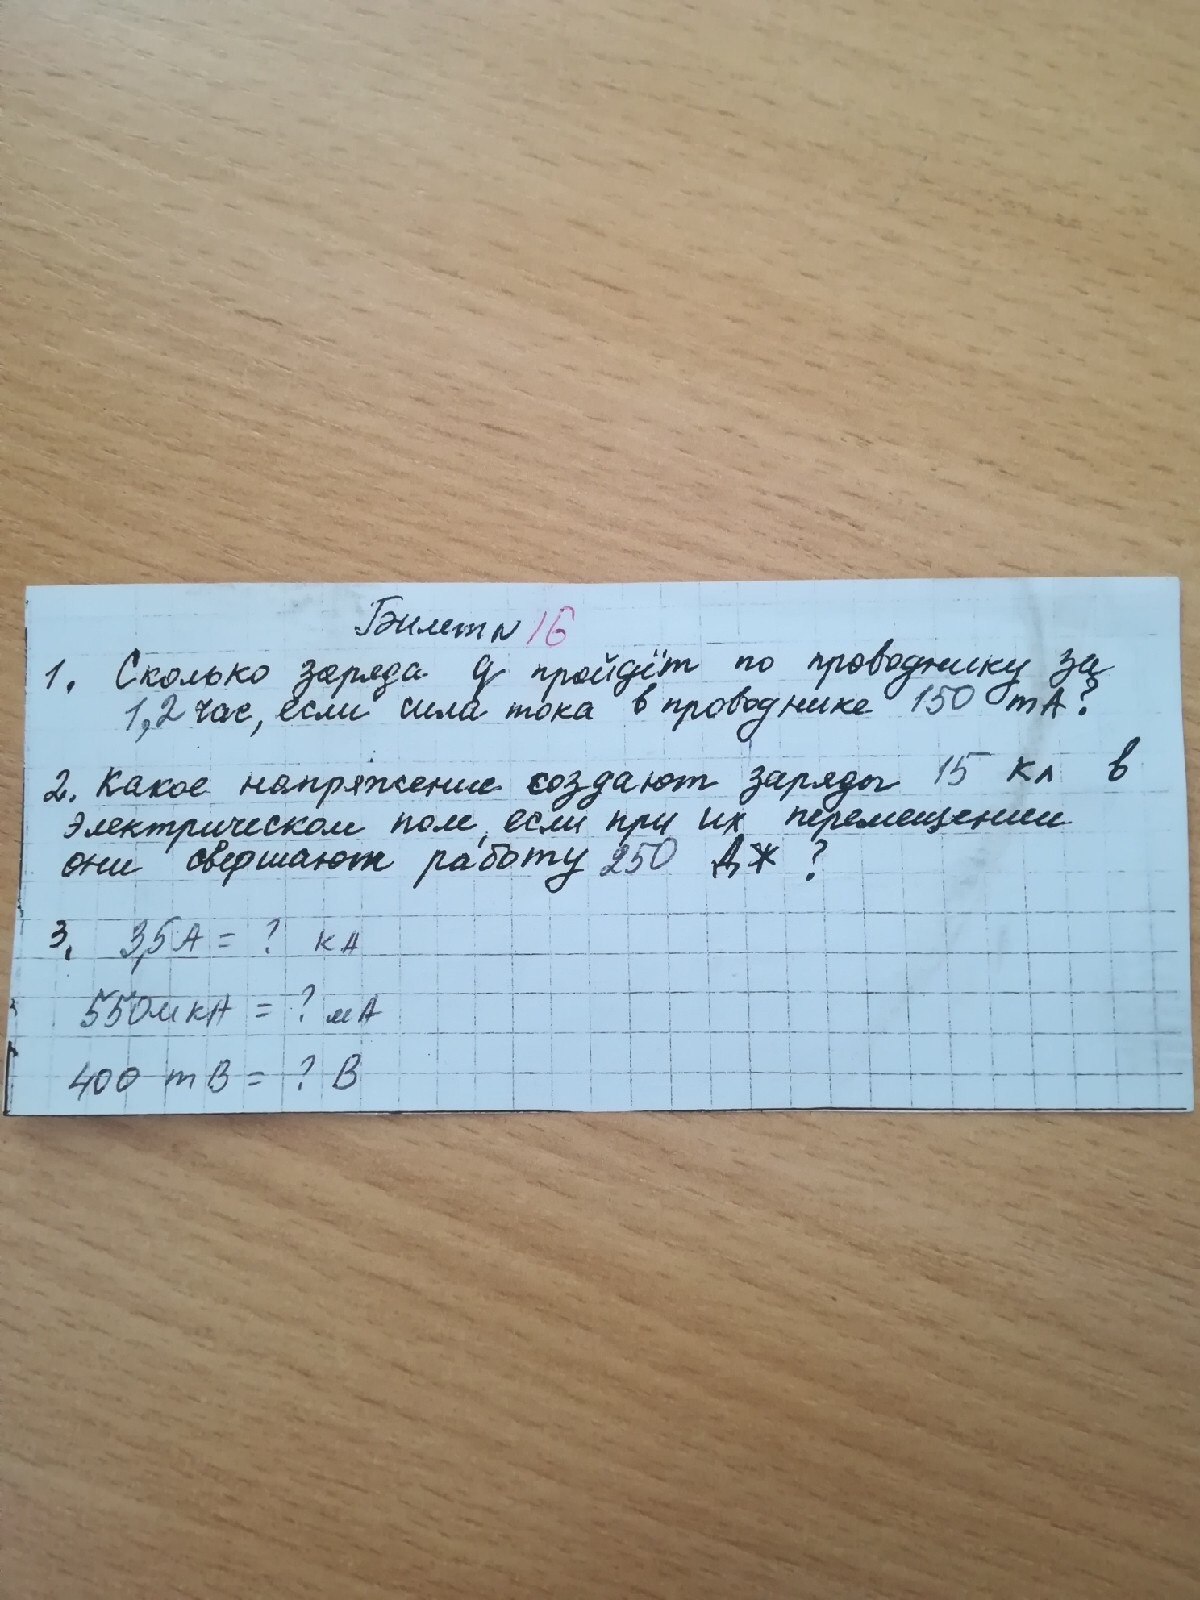 Билет N 16
1. Сколько заряда q пройдёт по проводнику за
1,2 час, если сила тока в проводнике 150 mA?
2. Какое напряжение создают заряды 15 Кл в
электрическом поле, если при их перемещении
они свершают работу 250 Дж ?
3. 3,5А = ? кА
550мкА = ? мА
400 mВ = ? В